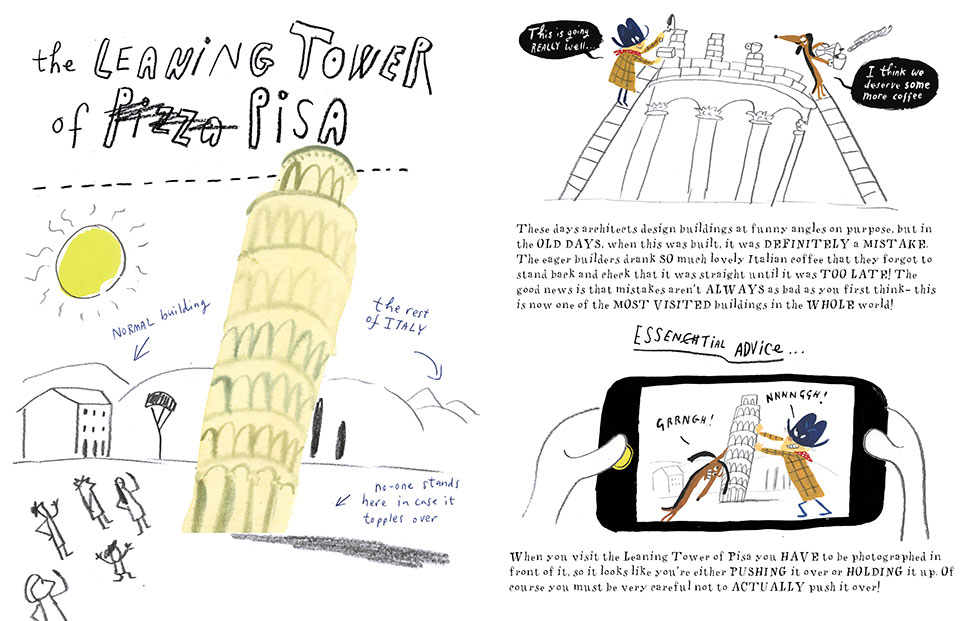 the LEANING TOWER
of Pizza PISA
NORMAL building
the rest
of ITALY
no-one stands
here in case it
topples over
This is going
REALLY well...
I think we
deserve some
more coffee
These days architects design buildings at funny angles on purpose, but in
the OLD DAYS, when this was built, it was DEFINITELY a MISTAKE.
The eager builders drank SO much lovely Italian coffee that they forgot to
stand back and check that it was straight until it was TOO LATE! The
good news is that mistakes aren't ALWAYS as bad as you first think- this
is now one of the MOST VISITED buildings in the WHOLE world!
ESSENCHTIAL ADVICE...
GRRNGH!
NNNNGGH!
When you visit the Leaning Tower of Pisa you HAVE to be photographed in
front of it, so it looks like you're either PUSHING it over or HOLDING it up. Of
course you must be very careful not to ACTUALLY push it over!